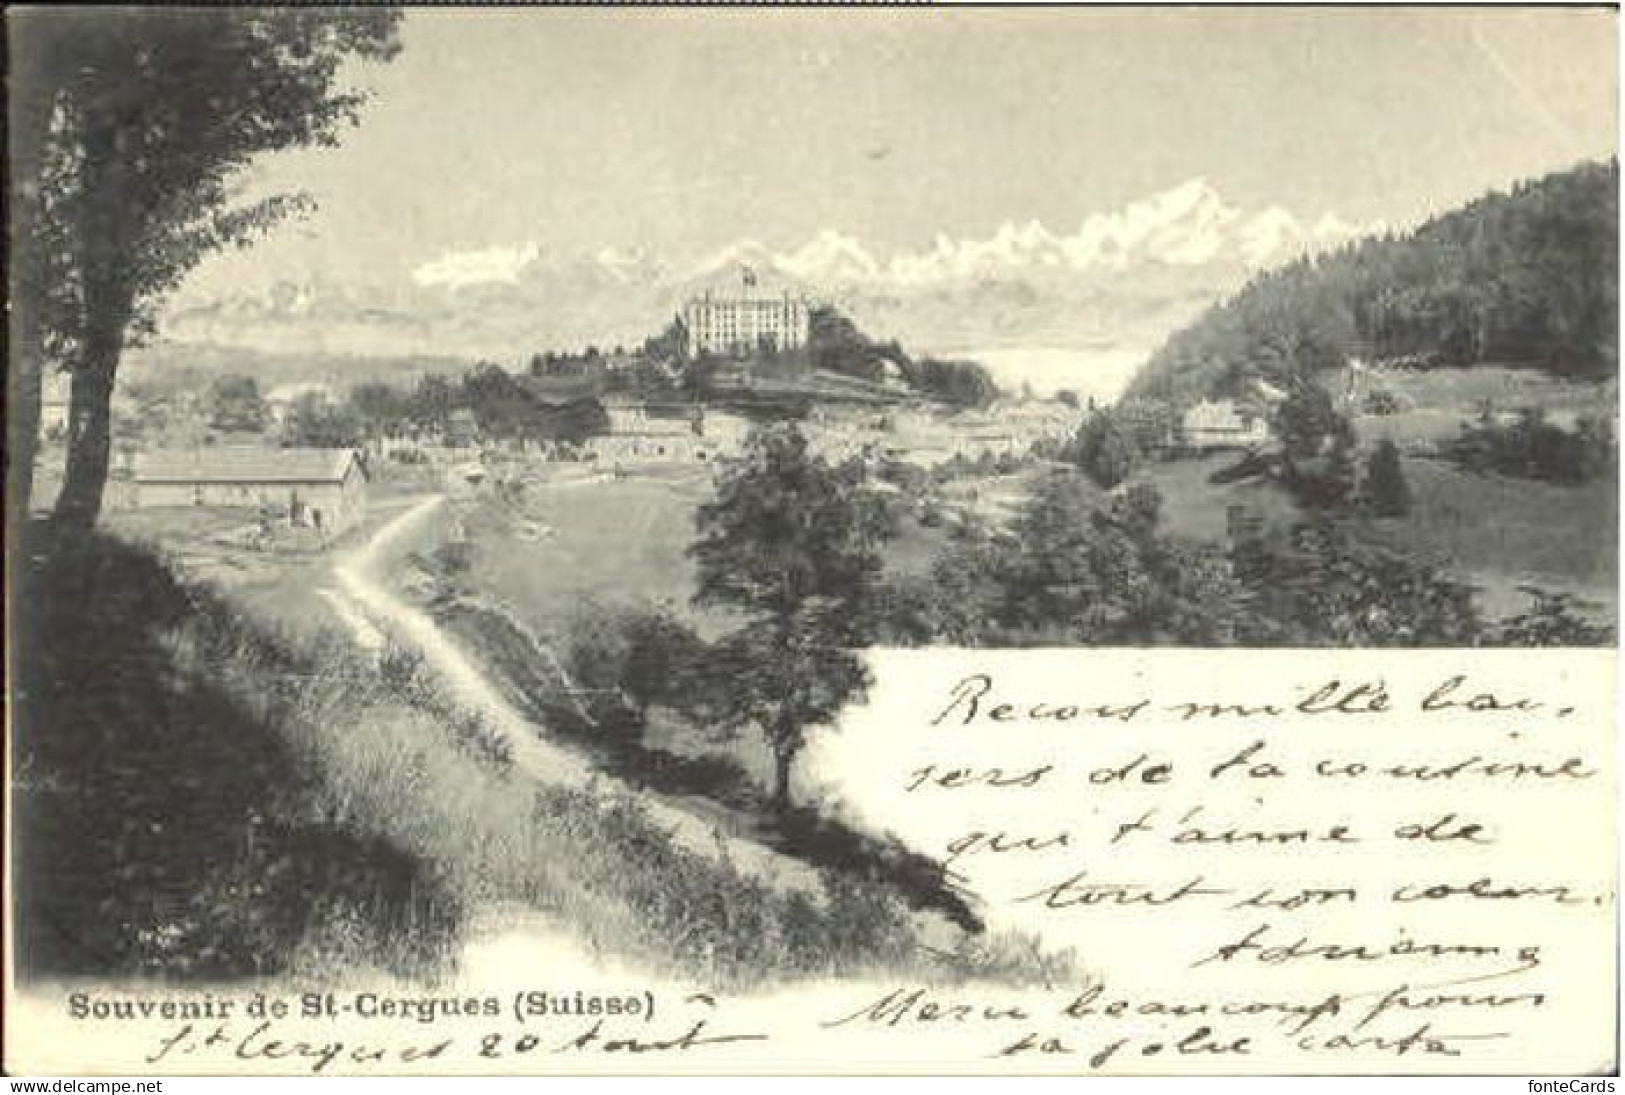 Recois mille bai-
sers de ta cousine
qui t'aime de
tout son cœur.
Adrienne
Souvenir de St-Cergues (Suisse)
Merci beaucoup pour
ta jolie carte
St Cergues 20 Aout
www.delcampe.net
fonteCards